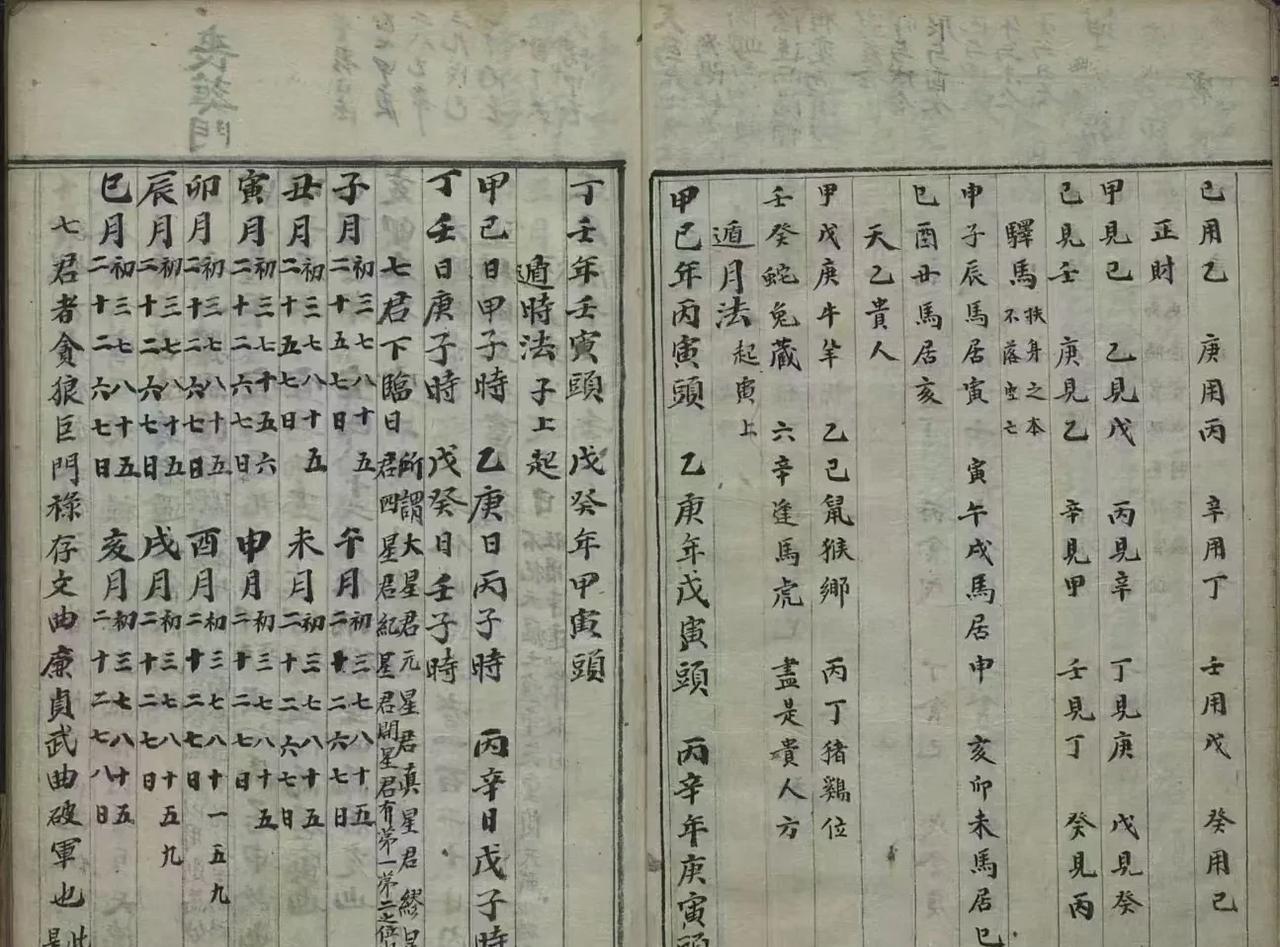 己用乙 庚用丙 辛用丁 壬用戊 癸用己
正財
甲見己 乙見戊 丙見辛 丁見庚 戊見癸
己見壬 庚見乙 辛見甲 壬見丁 癸見丙
驛馬 扶身之本 不落空亡
申子辰馬居寅 寅午戌馬居申 亥卯未馬居巳
巳酉丑馬居亥
天乙貴人
甲戊庚牛羊 乙己鼠猴鄉 丙丁猪鷄位
壬癸蛇兔藏 六辛逢馬虎 盡是貴人方
遁月法 起寅上
甲己年丙寅頭 乙庚年戊寅頭 丙辛年庚寅頭
丁壬年壬寅頭 戊癸年甲寅頭
遁時法 子上起
甲己日甲子時 乙庚日丙子時 丙辛日戊子時
丁壬日庚子時 戊癸日壬子時
七君下臨日 所謂大星君元星君真星君繆星 君四星君紀星君開星君有第一第二之位
子月 初三七八十五 二十五七日 午月 初三七八十五 二十二六七日
丑月 初三七八十五 二十五七日 未月 初三七八十五 二十二六七日
寅月 初三七十五六 二十二六七日 申月 初三七八十五 二十二七日
卯月 初三七八十五 二十二六七日 酉月 初三七八十一五九 二十二七日
辰月 初三七八十五 二十二六七日 戌月 初三七八十五九 二十二七日
巳月 初三七八十五 二十二六七日 亥月 初三七八十五 二十二七八日
七君者貪狼巨門祿存文曲廉貞武曲破軍也 此 是